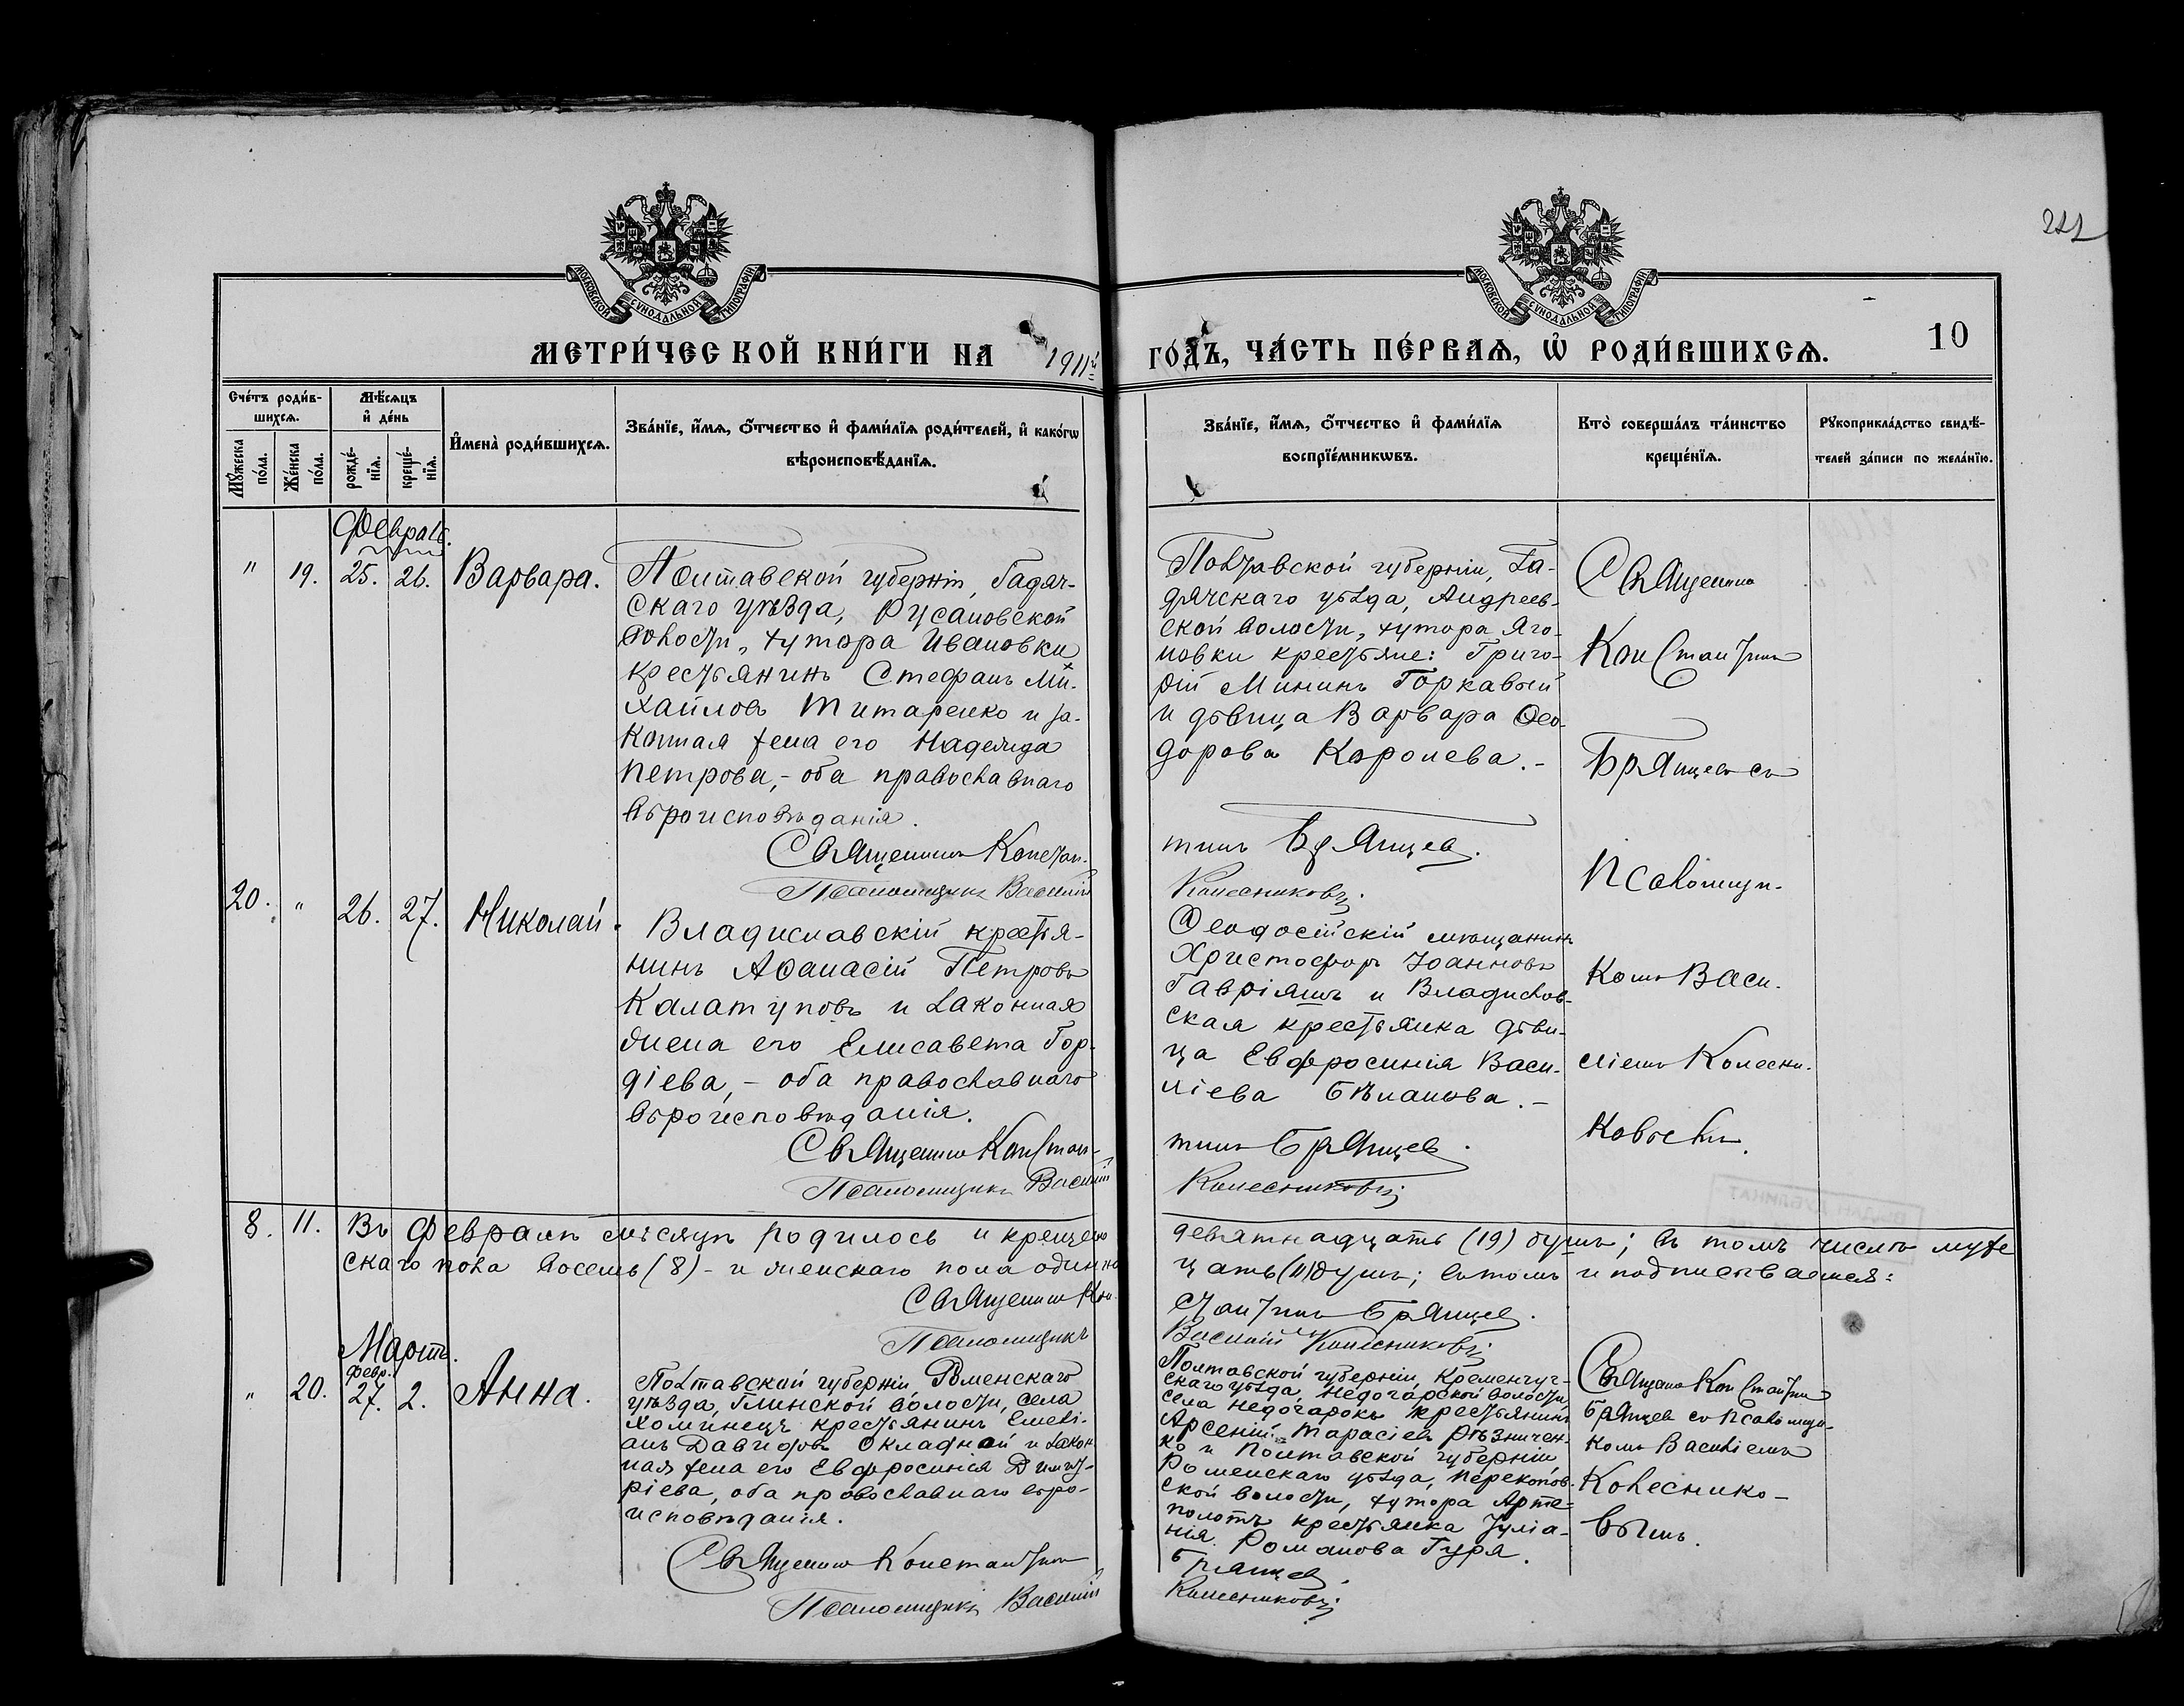 222
МОСКОВСКОЙ СѴНОДАЛЬНОЙ ТИПОГРАФІИ
МОСКОВСКОЙ СѴНОДАЛЬНОЙ ТИПОГРАФІИ
МЕТРИ́ЧЕСКОЙ КНИ́ГИ НА 1911й
ГО́ДЪ, ЧА́СТЬ ПЕ́РВАѦ, Ѽ РОДИ́ВШИХСѦ.
10
Сче́тъ роди́в-
шихсѧ.
Мꙋ́жеска по́ла.
Же́нска по́ла.
Мѣ́сяцъ
и҆ де́нь
рожде́-
нїѧ.
креще́-
нїѧ.
И҆мена̀ роди́вшихсѧ.
Зва́нїе, и҆́мѧ, ѻ҆́тчество и҆ фами́лїѧ роди́телей, и҆ како́гѡ
вѣроисповѣ́данїѧ.
Зва́нїе, и҆́мѧ, ѻ҆́тчество и҆ фами́лїѧ
воспрїе́мникѡвъ.
Кто̀ соверша́лъ та́инство
креще́нїѧ.
Рꙋкоприкла́дство свидѣ́-
телей за́писи по жела́нїю.
Февраль.
" 19. 25. 26. Варвара.
Полтавской губерніи, Гадяч-
скаго уѣзда, Русановской
волости, хутора Ивановки
крестьянинъ Стефанъ Ми-
хайловъ Титаренко и за-
конная жена его Надежда
Петрова, - оба православнаго
вѣроисповѣданія.
Священникъ Констан-
Псаломщикъ Василій
Полтавской губерніи, Га-
дячскаго уѣзда, Андреев-
ской волости, хутора Яго-
новки крестьяне: Григо-
рій Мининъ Горкавый
и дѣвица Варвара Ѳео-
дорова Королева. -
тинъ Брянцев.
Колесниковъ.
Священникъ
Константинъ
Брянцевъ съ
псаломщи-
комъ Васи-
ліемъ Колесни-
ковымъ.
20. " 26. 27. Николай.
Владиславскій крестья-
нинъ Аѳанасій Петровъ
Калатуповъ и законная
жена его Елисавета Гор-
діева, - оба православнаго
вѣроисповѣданія.
Священникъ Констан-
Псаломщикъ Василій
Ѳеодосійскій мѣщанинъ
Христофоръ Іоанновъ
Гавріяшъ и Владислав-
ская крестьянка дѣви-
ца Евфросинія Васи-
ліева Бѣланова. -
тинъ Брянцев.
Колесниковъ
8. 11. Въ Февралѣ мѣсяцѣ родилось и крещено
девятнадцать (19) душъ; въ томъ числѣ муже
скаго пола восемь (8) - и женскаго пола одинна
цать (11) душъ; въ томъ и подписываемся:
Священникъ Кон-
стантинъ Брянцев.
Псаломщикъ
Василій Колесниковъ
Мартъ.
февр.
" 20. 27. 2. Анна.
Полтавской губерніи, Роменскаго
уѣзда, Глинской волости, села
Хоминецъ крестьянинъ Емелі-
анъ Давидовъ Окладной и закон
ная жена его Евфросинія Димит-
ріева, оба православнаго вѣро-
исповѣданія.
Священникъ Константинъ
Псаломщикъ Василій
Полтавской губерніи, Кременчуг-
скаго уѣзда, Недогарской волости,
села Недогарокъ крестьянинъ
Арсеній Тарасіевъ Рѣзничен-
ко и Полтавской губерніи,
Роменскаго уѣзда, Перекопов-
ской волости, хутора Арте-
полотъ крестьянка Іуліа-
нія Романова Гуря.
Брянцев.
Колесниковъ.
Священникъ Константинъ
Брянцевъ съ псаломщи-
комъ Василіемъ
Колеснико-
вымъ.